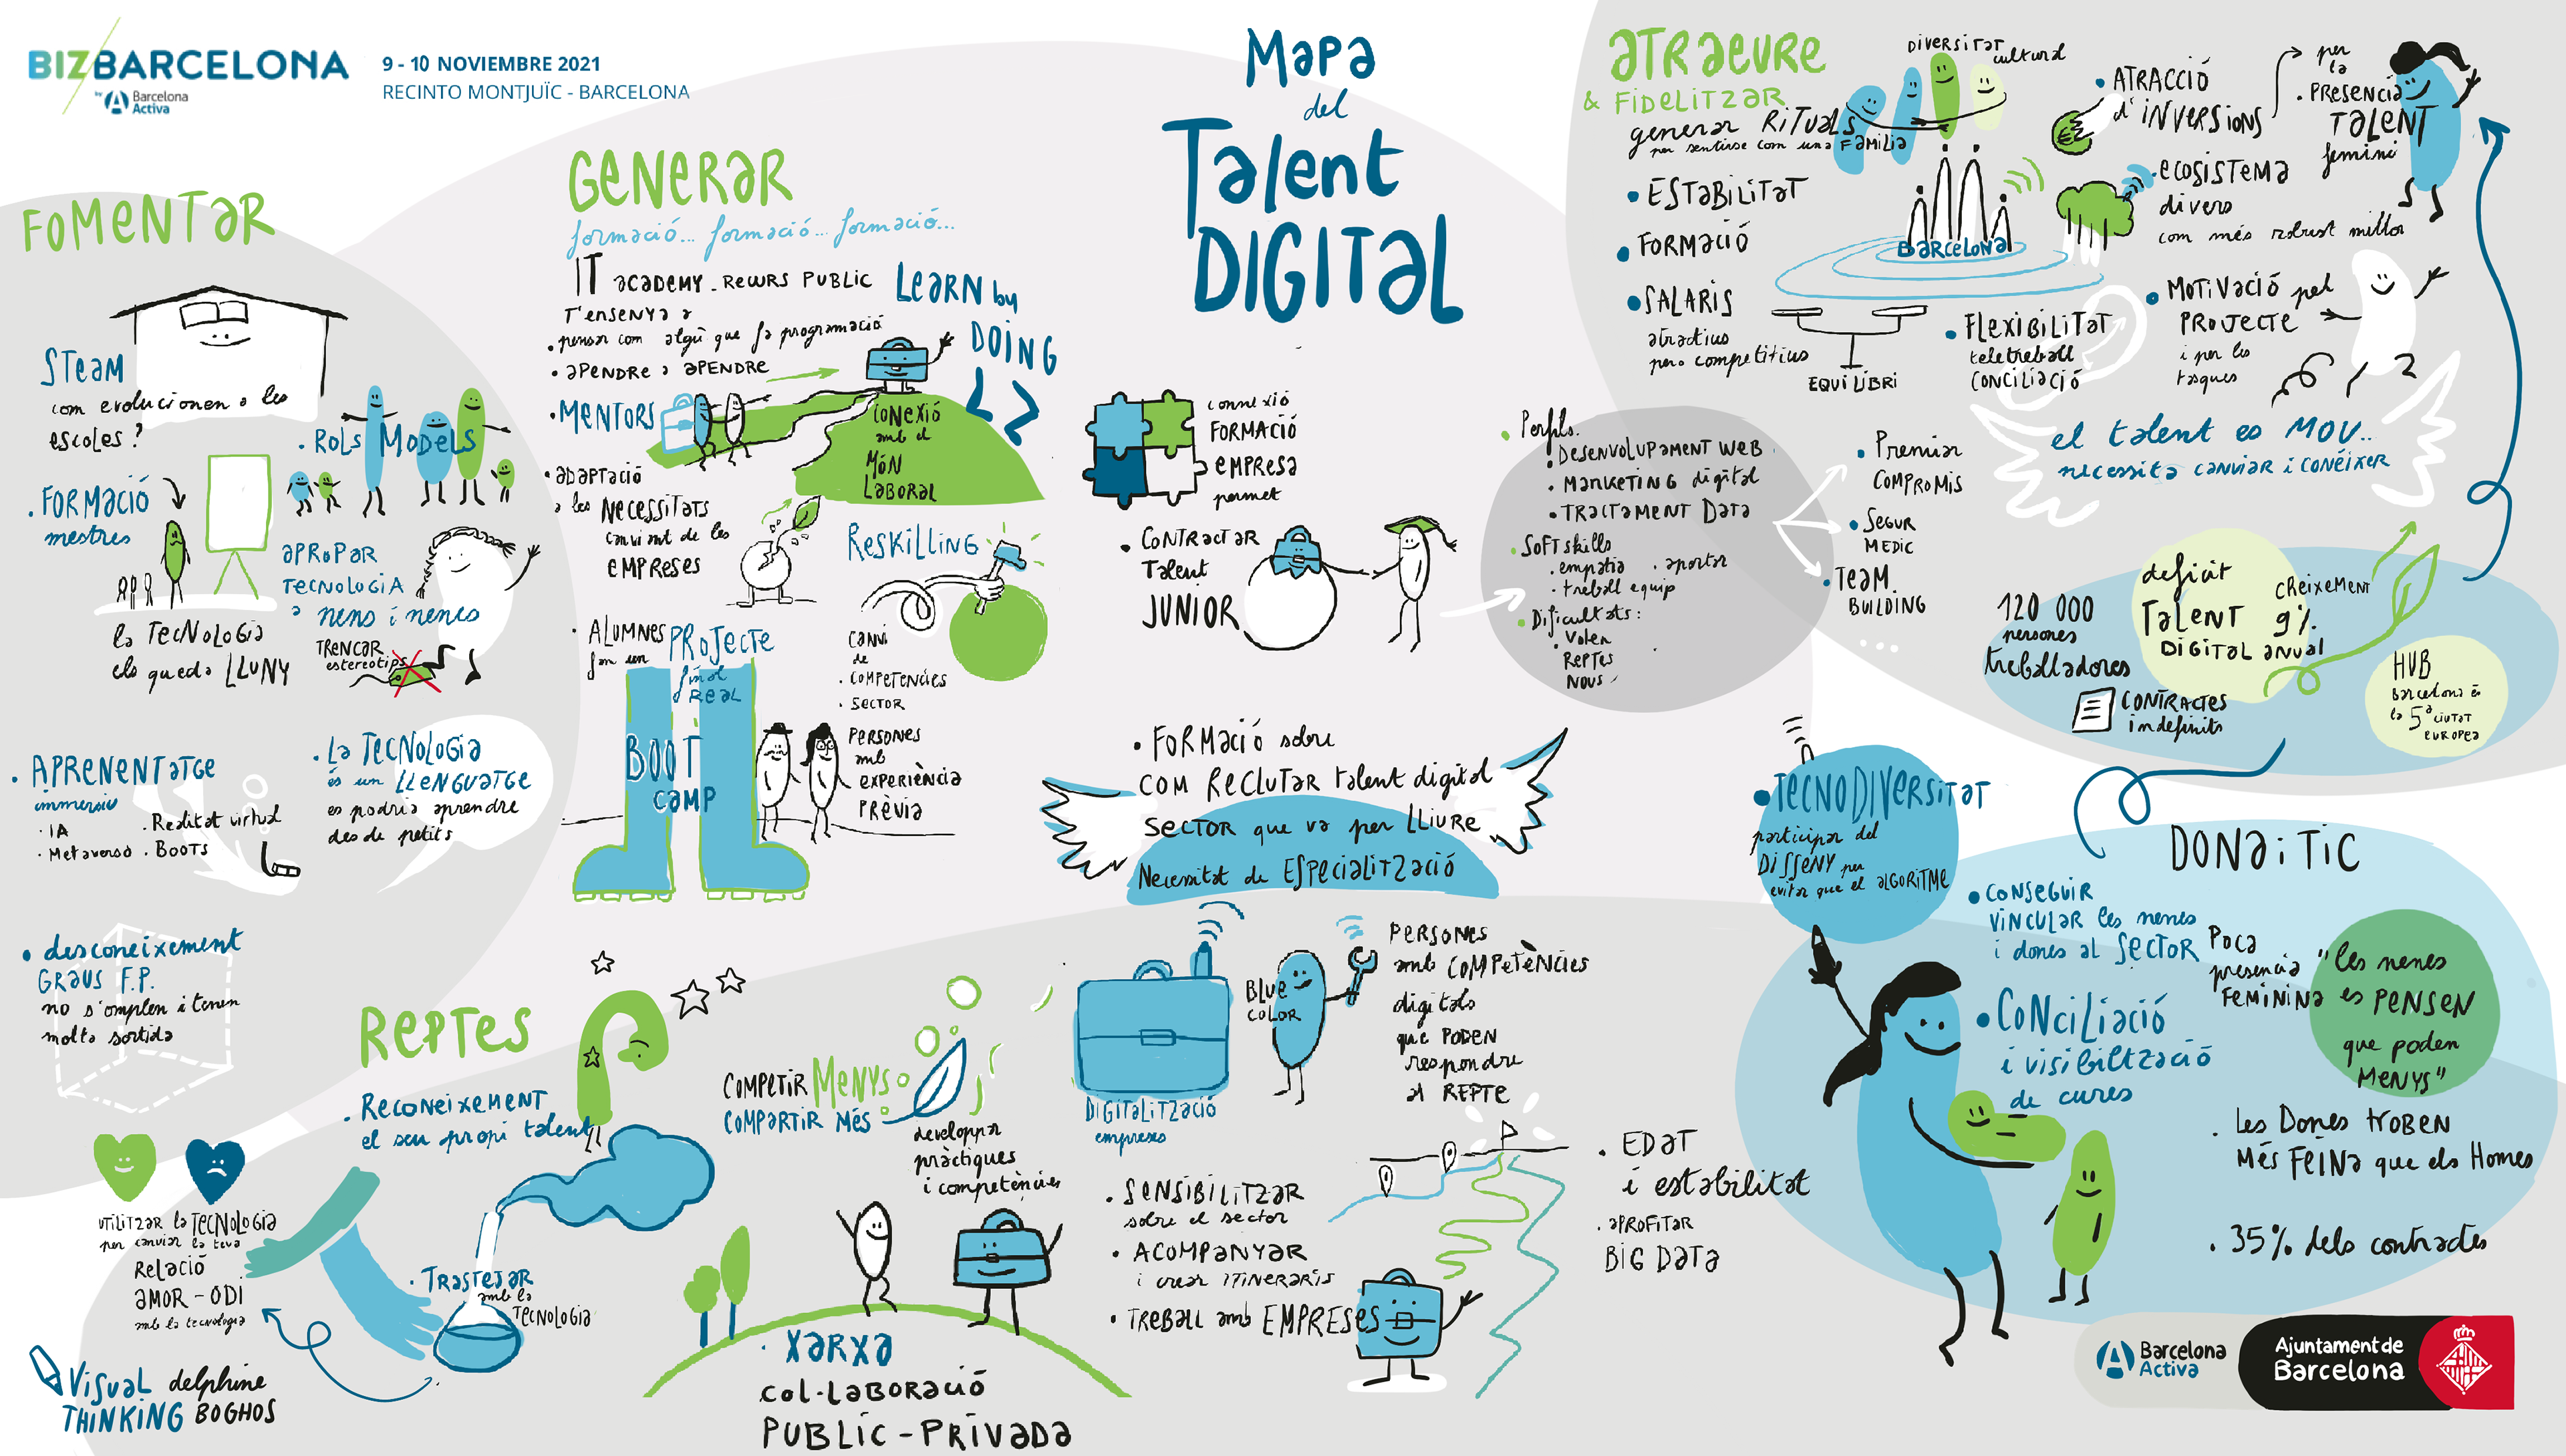 BIZBARCELONA
by Barcelona
Activa
9 - 10 NOVIEMBRE 2021
RECINTO MONTJUÏC - BARCELONA
Mapa
del
Talent
DIGITAL
FOMENTAR
STEAM
com evolucionen a les
escoles?
. ROLS MODELS
. FORMACIÓ
mestres
la TECNOLOGIA
els queda LLUNY
APROPAR
TECNOLOGIA
a nens i nenes
TRENCAR
estereotips
. APRENENTATGE
immersiu
. IA
. Realitat virtual
. Metaverso . BOOTS
. La TECNOLOGIA
és un LLENGUATGE
es podria aprendre
des de petits
• desconeixement
GRAUS F.P.
no s'omplen i tenen
molta sortida
GENERAR
formació... formació... formació...
IT ACADEMY - RECURS PUBLIC
T'ENSENYA a
• pensar com algú que fa programació
• APENDRE a APENDRE
LEARN by
DOING
• MENTORS
CONEXIÓ
amb el
MÓN
LABORAL
• ADAPTACIÓ
a les NECESSITATS
canviant de les
EMPRESES
RESKILLING
CANVI
de
. COMPETENCIES
. SECTOR
. ALUMNES
fan un PROJECTE
final
REAL
BOOT
CAMP
PERSONES
amb
EXPERIÈNCIA
PRÈVIA
connexió
FORMACIÓ
EMPRESA
permet
. CONTRACTAR
Talent
JUNIOR
. Perfils.
. DESENVOLUPAMENT WEB
. MARKETING digital
. TRACTAMENT DATA
. SOFT skills
. empatia . aportar
. treball equip
. Dificultats:
Volen
REPTES
NOUS
• Premiar
COMPROMIS
• SEGUR
MEDIC
• TEAM
BUILDING
...
• FORMACIÓ sobre
COM RECLUTAR talent digital
SECTOR que va per LLIURE
Necessitat de ESPECIALITZACIÓ
ATRAEURE
& FIDELITZAR
generar RITUALS
per sentirse com una FAMILIA
DIVERSITAT
cultural
• ESTABILITAT
• FORMACIÓ
• SALARIS
atractius
pero competitius
BARCELONA
EQUILIBRI
• ATRACCIÓ
d'INVERSIONS
per
la
. PRESENCIA
TALENT
femini
. ecosistema
divers
com més robust millor
• FLEXIBILITAT
teletreball
CONCILIACIÓ
• MOTIVACIÓ pel
PROJECTE
i per les
tasques
el talent es MOU..
necessita canviar i conèixer
120 000
persones
treballadores
deficit
TALENT
DIGITAL
CREIXEMENT
9%
anual
CONTRACTES
indefinits
HUB
Barcelona és
la 5ª CIUTAT
EUROPEA
• TECNODIVERSITAT
participar del
DISSENY per
evitar que el ALGORITME
DONA i TIC
• CONSEGUIR
VINCULAR les nenes
i dones al SECTOR
Poca
presencia
FEMININA
"les nenes
es PENSEN
que poden
MENYS"
• CONCILIACIÓ
i visibilització
de cures
. Les Dones TROBEN
Més FEINA que els Homes
. 35% dels contractes
REPTES
. RECONEIXEMENT
el seu propi talent
COMPETIR MENYS
COMPARTIR MÉS
developpar
pràctiques
i competències
DIGITALITZACIÓ
empreses
BLUE
COLOR
PERSONES
amb COMPETÈNCIES
digitals
que PODEN
respondre
al REPTE
UTILITZAR la TECNOLOGIA
per canviar la teva
RELACIÓ
AMOR - ODI
amb la tecnologia
. TRASTEJAR
amb la
TECNOLOGIA
. XARXA
COL·LABORACIÓ
PUBLIC - PRIVADA
. SENSIBILITZAR
sobre el sector
• ACOMPANYAR
i crear ITINERARIS
• TREBALL amb EMPRESES
. EDAT
i estabilitat
. APROFITAR
BIG DATA
VISUAL delphine
THINKING BOGHOS
Barcelona
Activa
Ajuntament de
Barcelona